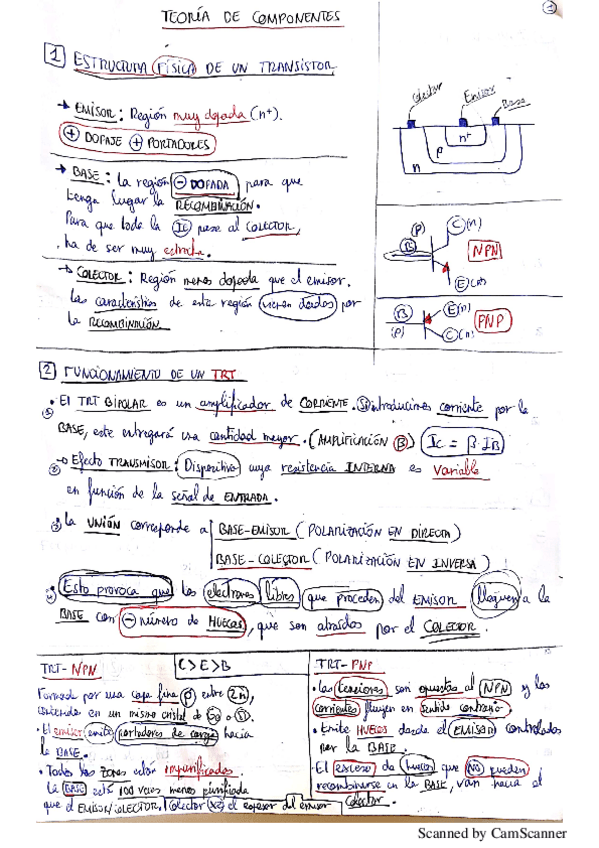 TEORÍA DE COMPONENTES
1
1 ESTRUCTURA FÍSICA DE UN TRANSISTOR
→ EMISOR: Región muy dopada (n+).
+ DOPAJE + PORTADORES
→ BASE: La región - DOPADA para que
tenga lugar la RECOMBINACIÓN.
Para que toda la IE pase al COLECTOR,
ha de ser muy estrecha.
→ COLECTOR: Región menos dopada que el emisor.
Las características de esta región vienen dadas por
la RECOMBINACIÓN
Colector
Emisor
Base
n+
p
n
(P)
B
C (n)
E (n)
NPN
B
(P)
E(n)
C(n)
PNP
2 FUNCIONAMIENTO DE UN TRT
① El TRT BIPOLAR es un amplificador de CORRIENTE. Si introducimos corriente por la
BASE, este entregará una cantidad mayor. (AMPLIFICACIÓN β) IC = β·IB
② Efecto TRANSMISOR: Dispositivo cuya resistencia INTERNA es variable
en función de la señal de ENTRADA.
③ La UNIÓN corresponde a BASE-EMISOR (POLARIZACIÓN EN DIRECTA)
BASE-COLECTOR (POLARIZACIÓN EN INVERSA)
Esto provoca que los electrones libres que proceden del EMISOR lleguen a la
BASE con - número de HUECOS, que son atraídos por el COLECTOR.
TRT-NPN
C>E>B
Formado por una capa fina P entre 2n,
contenida en un mismo cristal de
• El emisor emite portadores de carga hacia
la BASE.
• Todas las zonas están impurificadas.
La BASE está 100 veces menos purificada
que el EMISOR/COLECTOR. Colector (x2) el espesor del emisor
TRT-PNP
• Las tensiones son opuestas al NPN y las
corrientes fluyen en sentido contrario.
• Emite HUECOS desde el EMISOR controlados
por la BASE.
• El exceso de huecos que NO pueden
recombinarse en la BASE, van hacia el
Colector.
Scanned by CamScanner